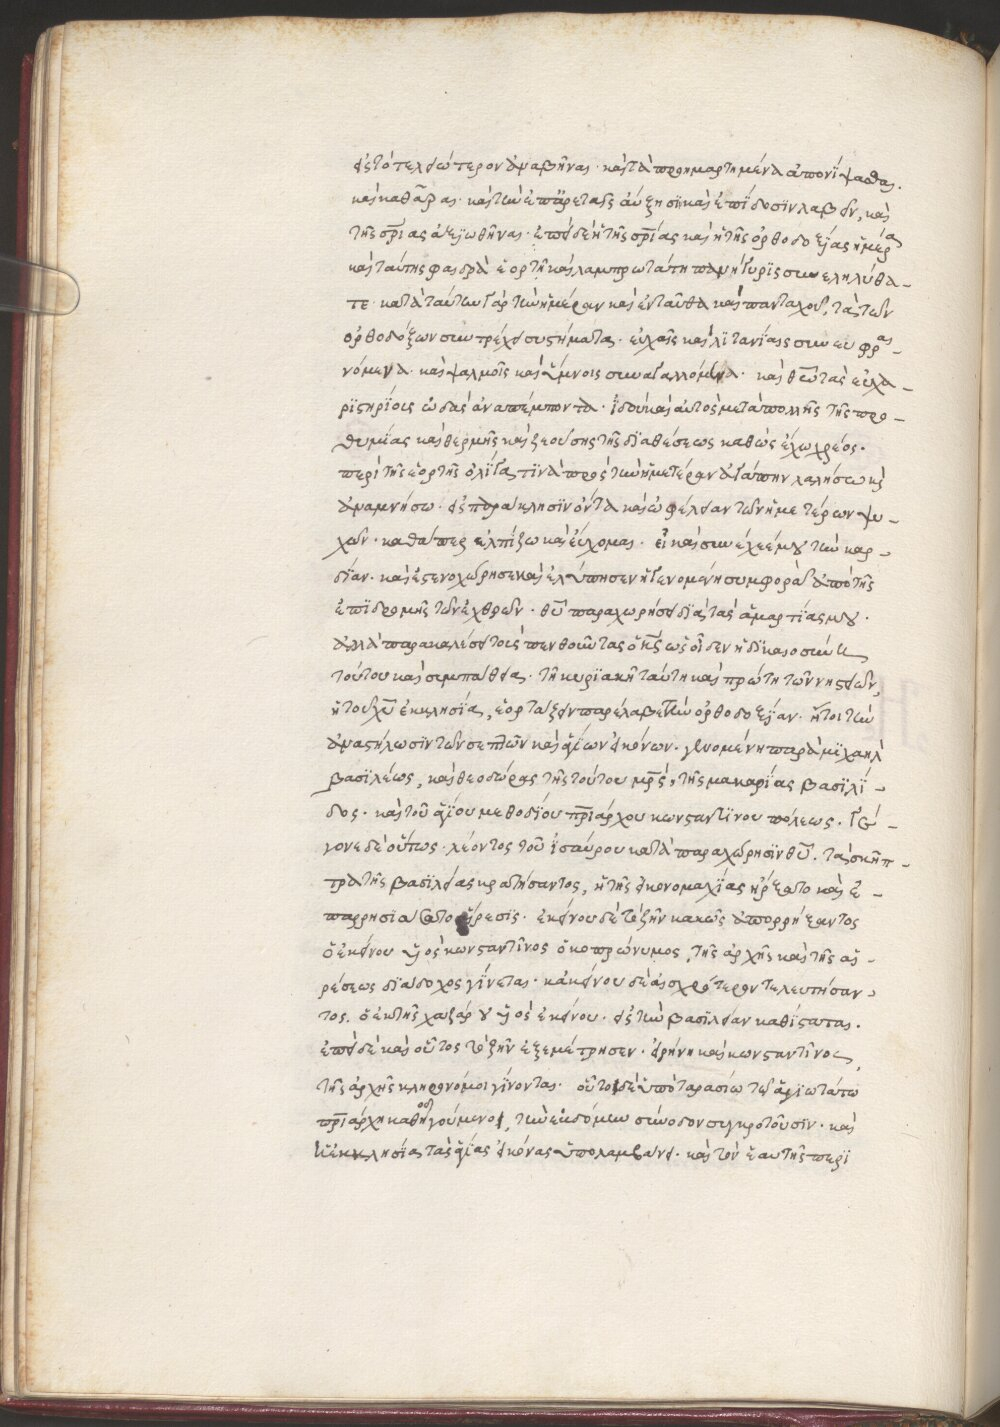 εἰς τὸ τελεώτερον ἀναβῆναι· καὶ τὰ προημαρτημένα ἀπονίψασθαι.
καὶ καθᾶραι· καὶ τὴν ἐπ' ἀρεταῖς αὔξησιν καὶ ἐπίδοσιν λαβεῖν, καὶ
τῆς σ̅ρίας ἀξιωθῆναι· ἐπεὶ δὲ ἡ τῆς σ̅ρίας καὶ ἡ τῆς ὀρθοδοξίας ἡμέρα
καὶ ταύτης φαιδρὰ ἑορτὴ καὶ λαμπρωτάτη πανήγυρις συνεληλύθα-
τε· κατὰ ταύτην γὰρ τὴν ἡμέραν καὶ ἐνταῦθα καὶ πανταχοῦ, τὰ τῶν
ὀρθοδόξων συντρέχει συστήματα· εὐχαῖς καὶ λιτανίαις συνευφραι-
νόμενα· καὶ ψαλμοῖς καὶ ὕμνοις συναγαλλόμενα· καὶ θ̅ῶ τὰς εὐχα-
ριστηρίους ὠδὰς ἀναπέμποντα· ἰδοὺ καὶ αὐτὸς μετὰ πολλῆς τῆς προ-
θυμίας καὶ θερμῆς καὶ ζεούσης τῆς διαθέσεως καθὼς ἔχω χρέος·
περὶ τῆς ἑορτῆς ὀλίγα τινὰ πρὸς τὴν ἡμετέραν ἀγάπην λαλήσω κ̀
ἀναμνήσω· εἰς παράκλησιν ὄντα καὶ ὠφέλειαν τῶν ἡμετέρων ψυ-
χῶν· καθάπερ ἐλπίζω καὶ εὔχομαι· εἰ καὶ συνέχεέ μου τὴν καρ-
δίαν· καὶ ἐστενοχώρησε καὶ ἐλύπησεν ἡ γενομένη συμφορὰ ἀπὸ τῆς
ἐπιδρομῆς τῶν ἐχθρῶν· θ̅υ παραχωρήσει διὰ τὰς ἁμαρτίας μου·
ἀλλὰ παρακαλέσει τοὺς πενθοῦντας ὁ κ̅ς ὡς οἶδεν ἡ δικαιοσύνη
τούτου καὶ συμπάθεια· τῇ κυριακῇ ταύτη καὶ πρώτη τῶν νηστειῶν,
ἡ τοῦ χ̅υ ἐκκλησία, ἑορτάζειν παρέλαβε τὴν ὀρθοδοξίαν· ἤτοι τὴν
ἀναστήλωσιν τῶν σεπτῶν καὶ ἁγίων εἰκόνων· γενομένη παρὰ μιχαηλ
βασιλέως, καὶ θεοδώρας τῆς τούτου μ̅ρς, τῆς μακαρίας βασιλί-
δος· καὶ τοῦ ἁγίου μεθοδίου π̅ριάρχου κωνσταντίνου πόλεως· Γέ-
γονε δὲ οὕτως· λέοντος τοῦ ἰσαύρου κατὰ παραχώρησιν θ̅υ, τὰ σκῆπ-
τρα τῆς βασιλείας κρατήσαντος, ἡ τῆς εἰκονομαχίας ἤρξατο καὶ ἐ-
παρρησιάσατο αἵρεσις· ἐκείνου δὲ τὸ ζῆν κακῶς ἀπορρήξαντος
ὁ ἐκείνου υἱὸς κωνσταντῖνος ὁ κοπρώνυμος, τῆς ἀρχῆς καὶ τῆς αἱ-
ρέσεως διάδοχος γίνεται· κἀκείνου δὲ αἰσχρότερον τελευτήσαν-
τος. ὁ ἐκ τῆς χαζάρου υἱὸς ἐκείνου· εἰς τὴν βασιλείαν καθίσταται·
ἐπεὶ δὲ καὶ οὗτος τὸ ζῆν ἐξεμέτρησεν· εἰρήνη καὶ κωνσταντῖνος
τῆς ἀρχῆς κληρονόμοι γίνονται· οὗτοι δὲ ὑπὸ ταρασίω τῶ ἁγιωτάτω
π̅ριάρχη καθοδηγούμενοι, τὴν ἑβδόμην σύνοδον συγκροτοῦσιν· καὶ
ἡ ἐκκλησία τὰς ἁγίας εἰκόνας ὑπολαμβάνει· καὶ τὸν ἑαυτῆς περι